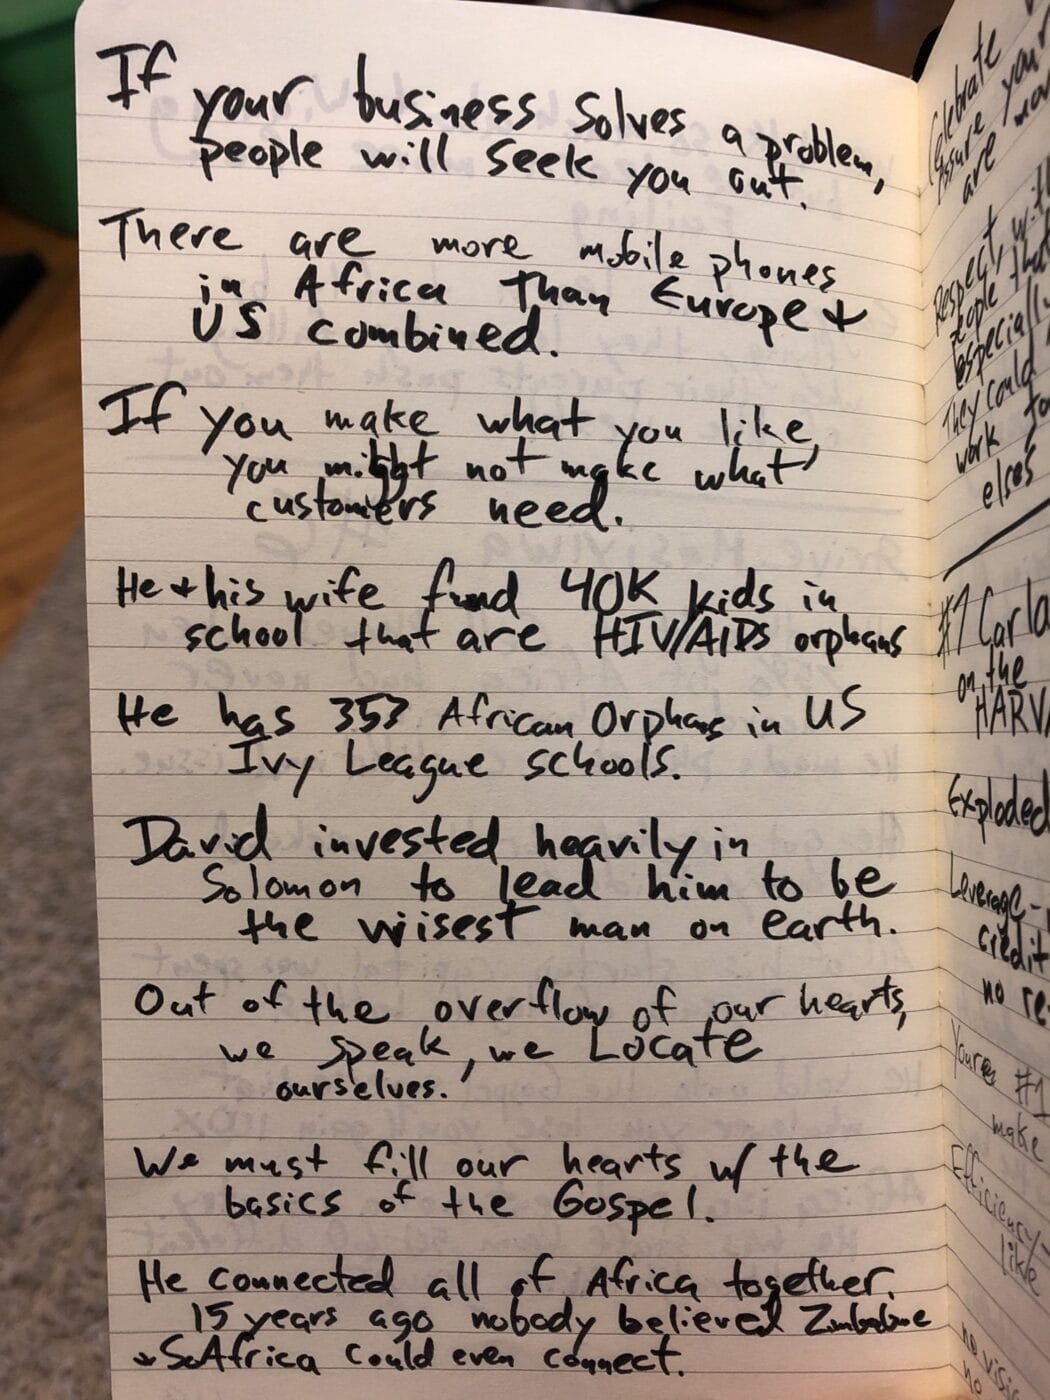 If your business solves a problem,
people will seek you out.
There are more mobile phones
in Africa Than Europe +
US combined.
If you make what you like,
you might not make what
customers need.
He + his wife fund 40K kids in
school that are HIV/AIDS orphans
He has 353 African Orphans in US
Ivy League schools.
David invested heavily in
Solomon to lead him to be
the wisest man on earth.
Out of the overflow of our hearts,
we speak, we Locate
ourselves.
We must fill our hearts w/ the
basics of the Gospel.
He connected all of Africa together.
15 years ago nobody believed Zimbabwe
+ So Africa could even connect.
Celebrate
Assure your
are
Respect, with
people that
especially
They could
work for
elses
#1
on the
Exploded
Leverage -
credit
no
Youre #1
make
Efficiency -
like
no
no